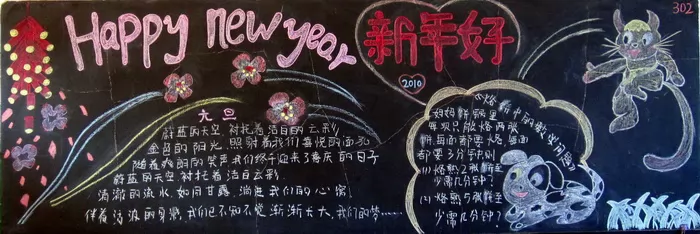 Happy new year
新年好
302
2010
元旦
蔚蓝的天空 衬托着洁白的云彩
金色的阳光 照射着我们喜悦的面孔
随着狗朗的笑声我们终于迎来了喜庆的日子
蔚蓝的天空衬托着洁白云彩
清澈的流水,如同甘露,淌进我们的心窝
伴着活泼的身影,我们已不知不觉渐渐长大,我们的梦……
《烙饼中的数学问题》
妈妈鲜锅里
每次只能烙两张
饼,每面都要烙,每面
都要3分钟,则
(1)烙熟2张饼至
少需几分钟?
(2)烙熟5张饼至
少需几分钟?